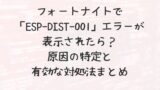 フォートナイトで
「ESP-DIST-001」エラーが
表示されたら？
原因の特定と
有効な対処法まとめ